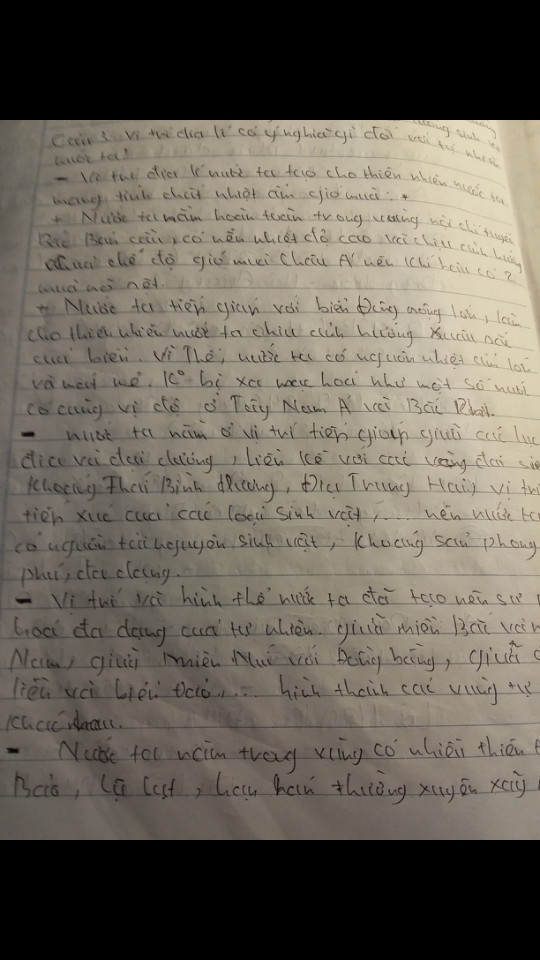 Câu 3. Vị trí địa lí có ý nghĩa gì đối với tự nhiên
nước ta?
- Vị trí địa lí nước ta tạo cho thiên nhiên nước ta
mang tính chất nhiệt ẩm gió mùa: +
+ Nước ta nằm hoàn toàn trong vương nội chí tuyến
Bắc Bán cầu, có nền nhiệt độ cao và chịu ảnh hưởng
của chế độ gió mùi Châu Á nên khí hậu có 2
mùa rõ rệt.
+ Nước ta tiếp giáp với biển Đông rộng lớn, làm
cho thiên nhiên nước ta chịu ảnh hưởng xuâu sắc
của biển. Vì Thế, nước ta có nguồn nhiệt ẩm lớn
và mưa nề. K° bị xa mạc hoá như một số nước
có cùng vị độ ở Tây Nam Á và Bắc Phi.
- nước ta nằm ở vị trí tiếp giáp giữa các lục
địa và đại dương, liền kề với các vòng đai si
khoáng Thái Bình dương, Địa Trung Hải, vị trí
tiếp xúc của các loại sinh vật, .... nên nước ta
có nguồn tài nguyên sinh vật, khoáng sản phong
phú, đa dạng.
- Vị trí và hình thể nước ta đã tạo nên sự
hoá đa dạng của tự nhiên. giữa miền Bắc với
Nam, giữa miền Núi với Đồng bằng, giữa đ
liền với biển Đảo, ... hình thành các vùng tự
khác nhau.
- Nước ta nằm trong vùng có nhiều thiên t
Bão, Lũ lụt, hạn hán thường xuyên xảy